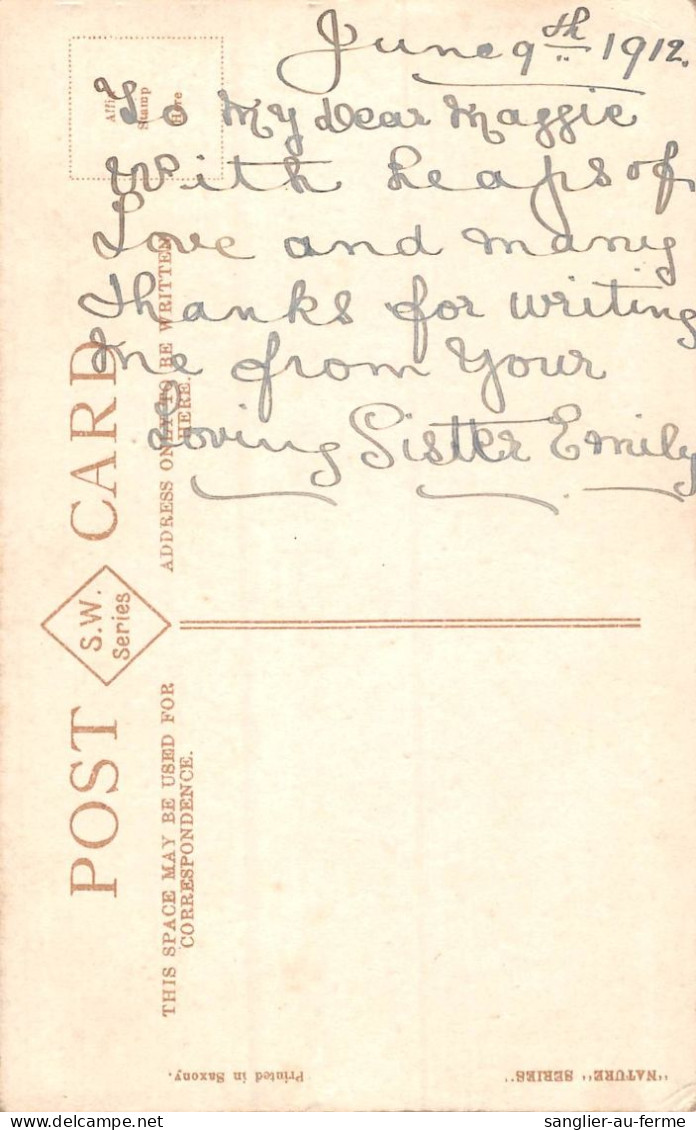 June 9th 1912.
To My Dear Maggie
With heaps of
Love and many
thanks for writing
me from Your
Loving Sister Emily
Affix
Stamp
Here
POST CARD
S.W.
Series
ADDRESS ONLY TO BE WRITTEN
HERE.
THIS SPACE MAY BE USED FOR
CORRESPONDENCE.
Printed in Saxony.
"NATURE" SERIES"
sanglier-au-ferme